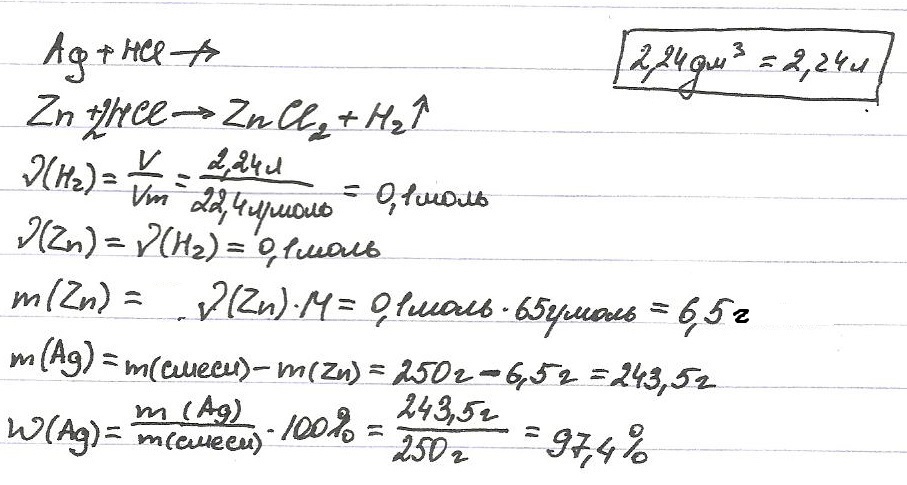 Ag + HCl ↛
2,24 дм³ = 2,24 л
Zn + 2HCl → ZnCl₂ + H₂↑
ν(H₂) = V/Vm = 2,24 л / 22,4 л/моль = 0,1 моль
ν(Zn) = ν(H₂) = 0,1 моль
m(Zn) = ν(Zn)·M = 0,1 моль · 65 г/моль = 6,5 г
m(Ag) = m(смеси) − m(Zn) = 250 г − 6,5 г = 243,5 г
W(Ag) = m(Ag)/m(смеси) · 100% = 243,5 г / 250 г = 97,4%